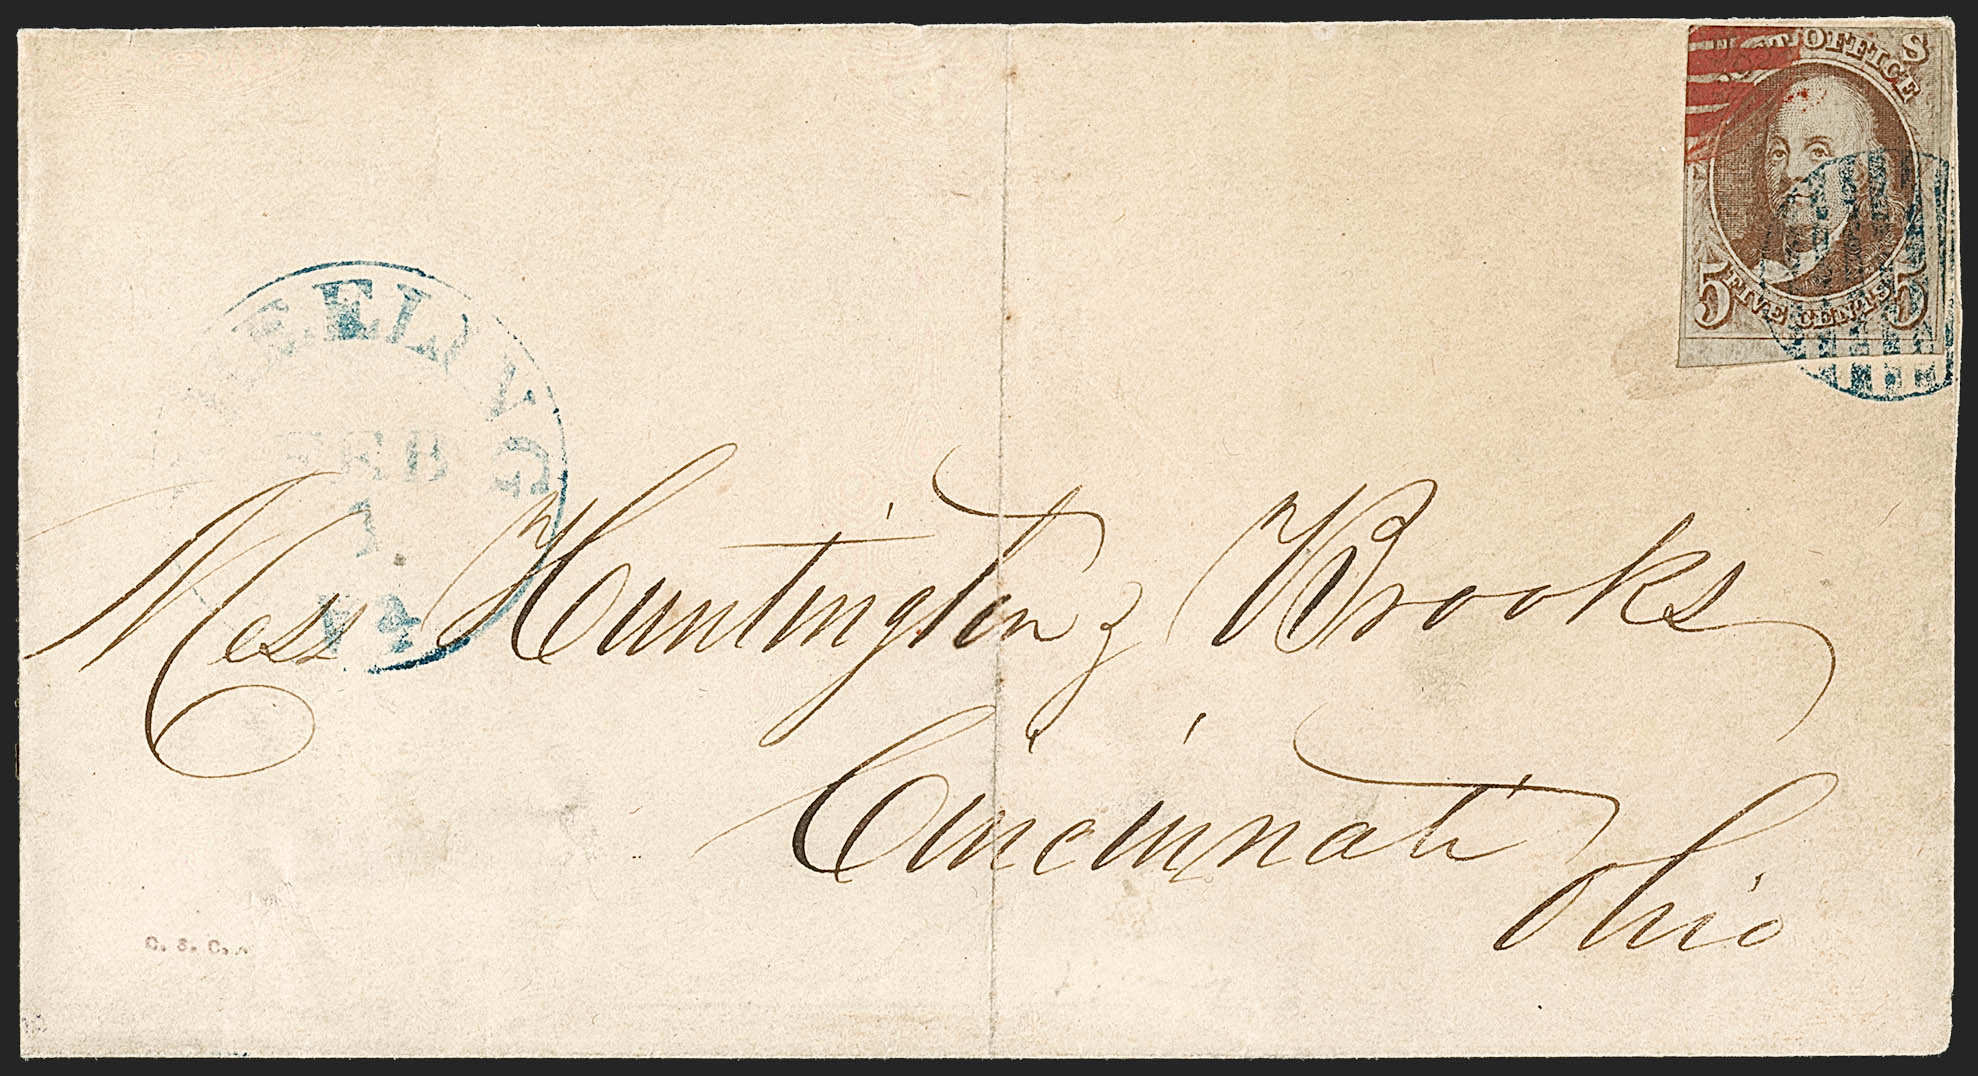 POST OFFICE S
5 FIVE CENTS 5
EELING
FEB
1
Va
Mess Huntington & Brooks
Cincinnati
Ohio
C. S. C.